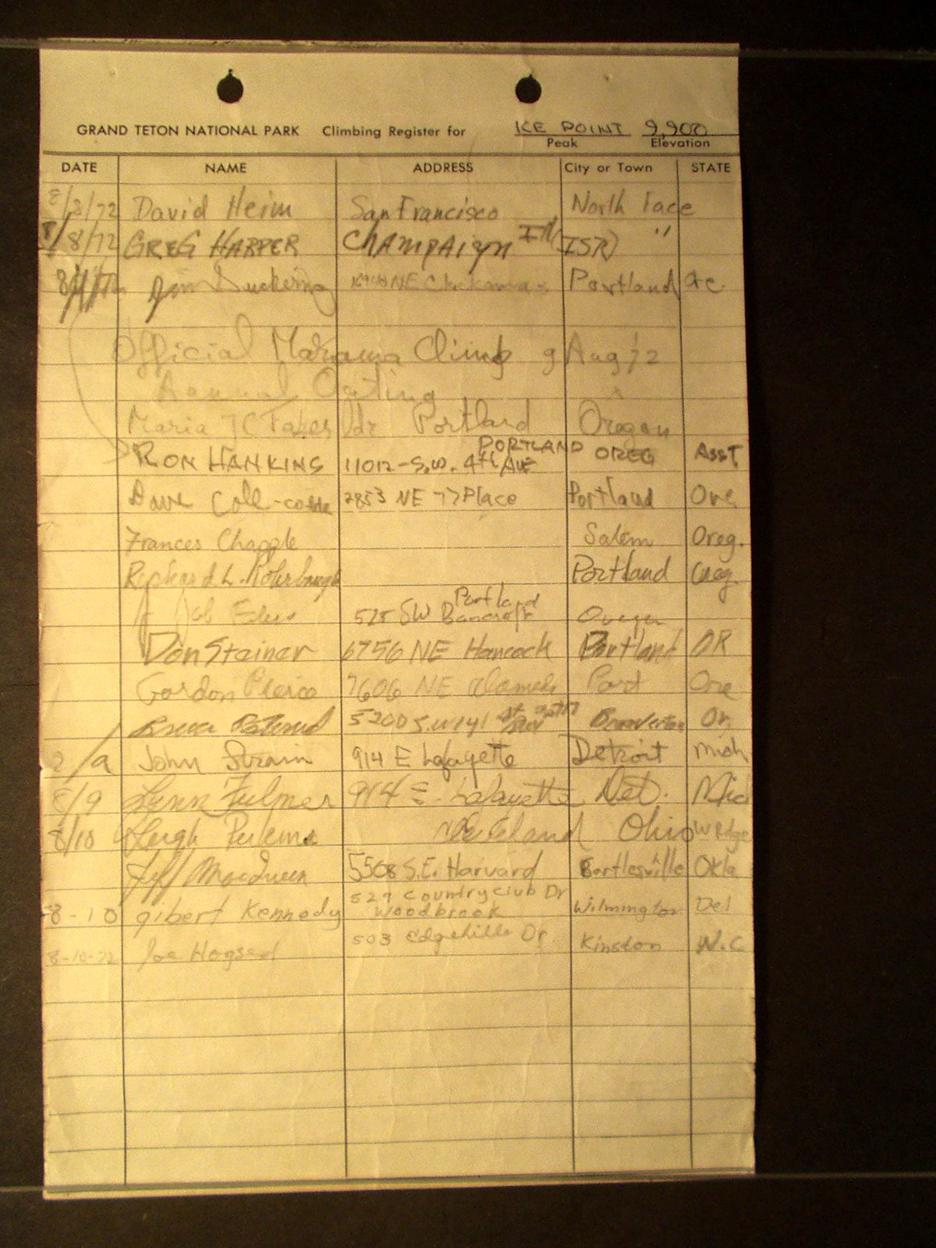 GRAND TETON NATIONAL PARK Climbing Register for ICE POINT 9,900
Peak Elevation
DATE NAME ADDRESS City or Town STATE
8/8/72 David Heim San Francisco North Face
8/8/72 GREG HARPER CHAMPAIGN Ill (ISR) "
Jim NE Portland
Official Mazama Climb 9 Aug 72
Annual Outing
Maria ldr Portland Oregon
RON HANKINS 11012-S.W. 4th AVE PORTLAND OREG ASST
Dave 2853 NE 77 Place Portland Ore.
Frances Chapple Salem Oreg.
Richard L. Rohrbaugh Portland Oreg.
525 SW Bancroft Portland Oregon
Don Stainer 6756 NE Hancock Portland OR
Gordon Pierce 7606 NE Alameda Port Ore
5200 S.W 141st Beaverton Or.
John Strain 914 E Lafayette Detroit Mich
8/9 Lynn Fulmer 914 E. Lafayette Det. Mic
8/10 Leigh Cleveland Ohio
Jeff MacQueen 5508 S.E. Harvard Bartlesville Okla
8-10 gilbert Kennedy 529 Country Club Dr Woodbrook Wilmington Del
8-10-72 Joe Hogsed 503 Edgehill Dr Kinston N.C